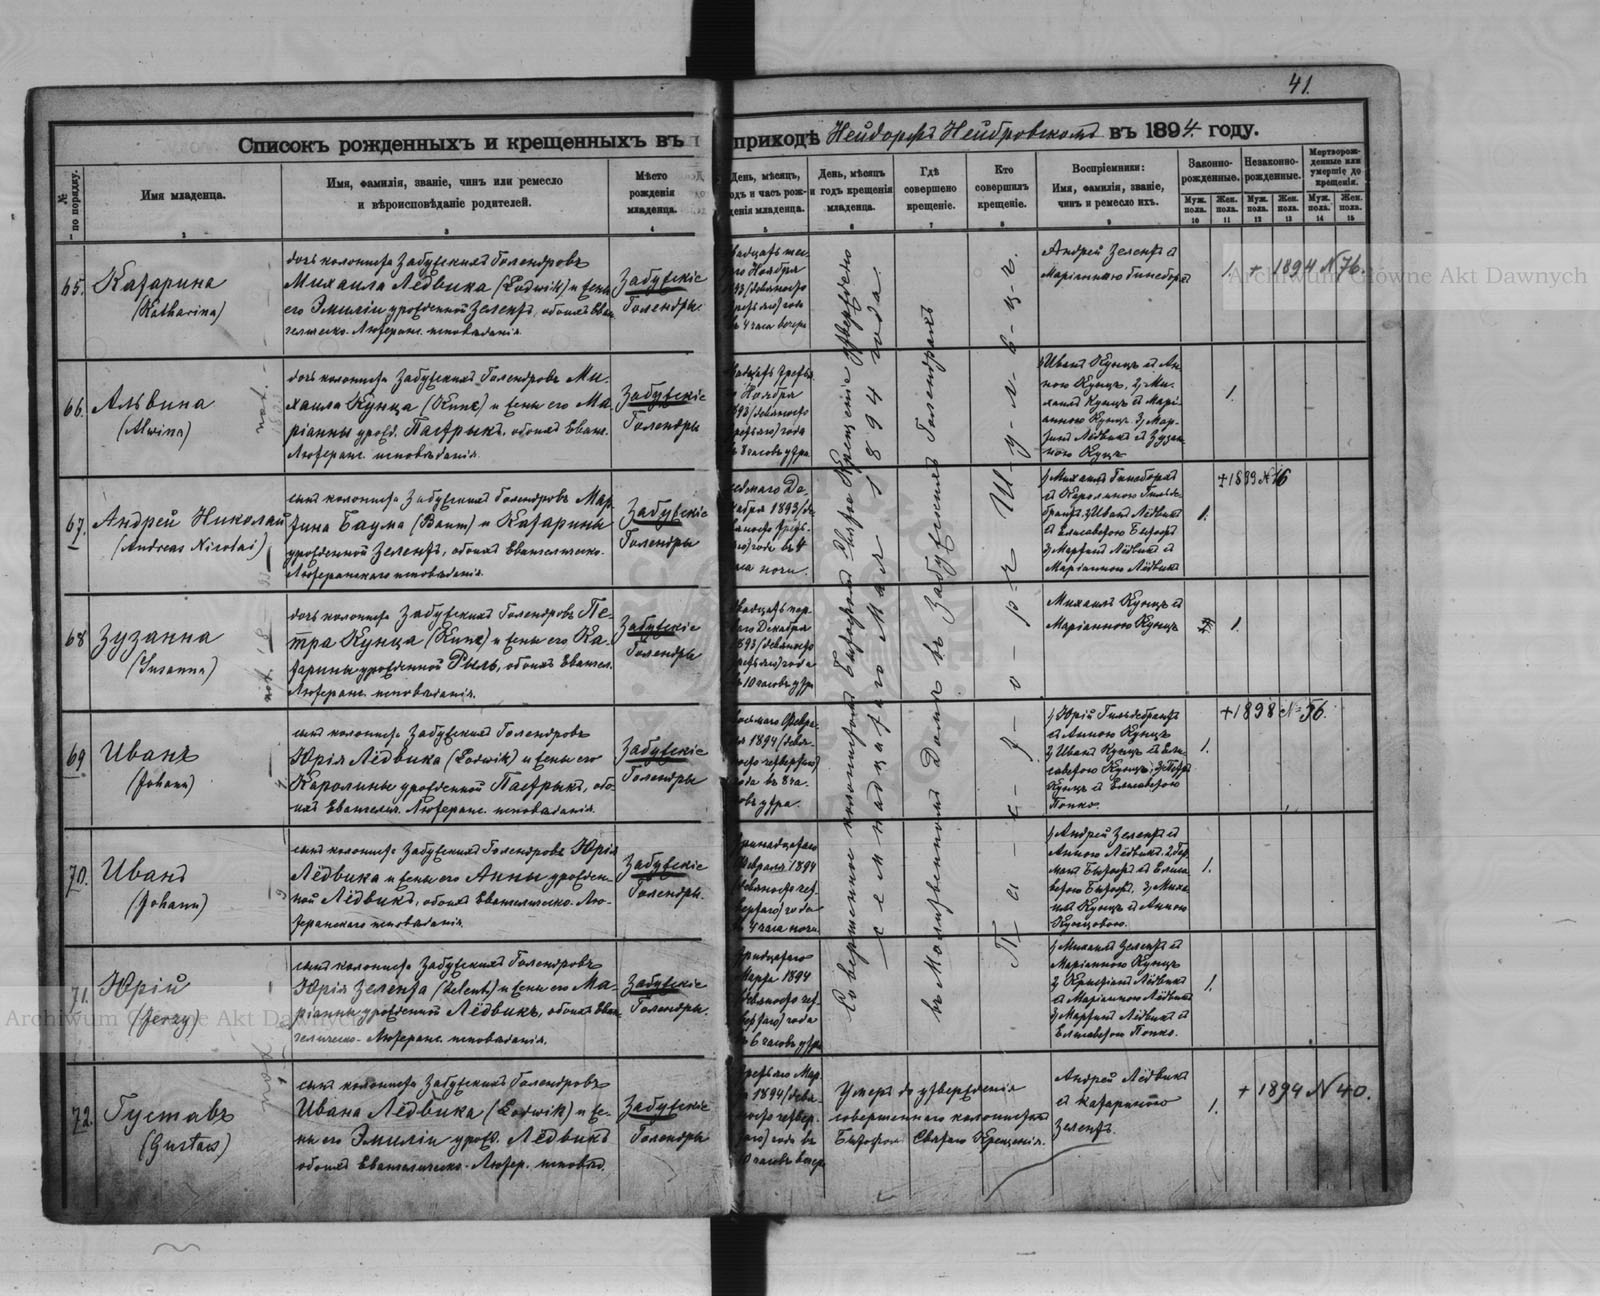 41.
Списокъ рожденныхъ и крещенныхъ въ приходѣ Нейдорфъ Нейбровскомъ въ 1894. году.
№ по порядку.
Имя младенца.
Имя, фамилія, званіе, чинъ или ремесло
и вѣроисповѣданіе родителей.
Мѣсто
рожденія
младенца.
День, мѣсяцъ,
годъ и часъ рож-
денія младенца.
День, мѣсяцъ
и годъ крещенія
младенца.
Гдѣ
совершено
крещеніе.
Кто
совершилъ
крещеніе.
Воспріемники:
Имя, фамилія, званіе,
чинъ и ремесло ихъ.
Законно-
рожденные.
Незаконно-
рожденные.
Мертворож-
денные или
умершіе до
крещенія.
Муж. пола.
Жен. пола.
Муж. пола.
Жен. пола.
Муж. пола.
Жен. пола.
1 2 3 4 5 6 7 8 9 10 11 12 13 14 15
65.
Катарина
(Katharina)
дочь колониста Забужскихъ Голендровъ
Михаила Лёдвика (Lodwik) и жены
его Эмиліи урожденной Зелентъ, обоихъ Еван
гелическо-Лютеранс. исповѣданія.
Забужскіе
Голендры.
го Ноября
года
4 часа вечера
Андрей Зелентъ и
Маріанною Гильдебратъ
1.
+ 1894 N 76.
66.
Альвина
(Alwina)
дочь колониста Забужскихъ Голендровъ Ми-
хаила Кунца (Kunc) и жены его Ма-
ріанны урожд. Пастрыкъ, обоихъ Еванг.
Лютеранс. исповѣданія.
Забужскіе
Голендры
Ноября
года
8 часовъ утра.
1) Иванъ Кунцъ и Ан-
ною Кунцъ, 2) Ми-
хаилъ Кунцъ и Марі-
анною Кунцъ 3) Мар-
тинъ Лёдвикъ и Зузан-
ною Кунцъ
1.
67.
Андрей Николай
(Andreas Nicolai)
сынъ колониста Забужскихъ Голендровъ Мар
тина Баума (Baum) и Катарины
урожденной Зелентъ, обоихъ Евангелическо-
Лютеранскаго исповѣданія.
Забужскіе
Голендры
седьмаго Де-
кабря 1893/де
года въ 4
часа ночи.
1) Михаилъ Гильдебратъ
и Каролиною Гильде-
брантъ, 2) Иванъ Лёдвикъ
и Елисаветою Бытовтъ
3) Мартинъ Лёдвикъ и
Маріанною Лёдвикъ
1.
+ 1899 N 16
68
Зузанна
(Susanna)
дочь колониста Забужскихъ Голендровъ Пе-
тра Кунца (Kunc) и жены его Ка-
тарины урожденной Рыль, обоихъ Евангел.
Лютеранс. исповѣданія.
Забужскіе
Голендры
Декабря
года
10 часовъ утра
Михаилъ Кунцъ и
Маріанною Кунцъ
1.
69
Иванъ
(Johann)
сынъ колониста Забужскихъ Голендровъ
Юрія Лёдвика (Lodwik) и жены его
Каролины урожденной Пастрыкъ, обо-
ихъ Евангелич. Лютеранс. исповѣданія.
Забужскіе
Голендры
Февра-
1894/девя-
носто четвертаго)
года въ 8 ча-
совъ утра.
1) Юрій Гильдебрантъ
и Анною Кунцъ
2) Иванъ Кунцъ и Ели-
саветою Кунцъ, 3) Петръ
Кунцъ и Елисаветою
Попко.
1.
+ 1898 N 56.
70.
Иванъ
(Johann)
сынъ колониста Забужскихъ Голендровъ Юрія
Лёдвика и жены его Анны урожден-
ной Лёдвикъ, обоихъ Евангелическо-Лю-
теранскаго исповѣданія.
Забужскіе
Голендры.
Февраля 1894
года
4 часа ночи.
1) Андрей Зелентъ и
Анною Лёдвикъ. 2)
Бытовтъ и Елиса-
ветою Бытовтъ. 3) Миха-
илъ Кунцъ и Анною
Кунцовою.
1.
71.
Юрій
(Jerzy)
сынъ колониста Забужскихъ Голендровъ
Юрія Зелента (Zelent) и жены его Ма-
ріанны урожденной Лёдвикъ, обоихъ Еван
гелическо-Лютеранс. исповѣданія.
Забужскіе
Голендры.
Марта 1894
года
6 часовъ утра
1) Михаилъ Зелентъ и
Маріанною Кунцъ
2) Христіанъ Лёдвикъ
и Маріанною Лёдвикъ
3) Мартинъ Лёдвикъ и
Елисаветою Попко.
1.
72.
Густавъ
(Gustav)
сынъ колониста Забужскихъ Голендровъ
Ивана Лёдвика (Lodwik) и же-
ны его Эмиліи урожд. Лёдвикъ
обоихъ Евангелическо-Лютер. исповѣд.
Забужскіе
Голендры
третьяго Мар-
та 1894/девя-
носто четвер-
таго) года въ
10 часовъ вечер.
Умеръ до утвержденія
совершеннаго колонистомъ
Бытовтомъ Святаго Крещенія.
Андрей Лёдвикъ
и Катариною
Зелентъ.
1.
+ 1894 N 40.
Совершенное колонистомъ Бытовтомъ Святое Крещеніе утверждено
семнадцатаго Мая 1894 года.
въ Молитвенномъ Домѣ въ Забужскихъ Голендрахъ
П-а-с-т-о-р-ъ Ш-у-л-ь-ц-ъ.
Archiwum Główne Akt Dawnych
Archiwum Główne Akt Dawnych